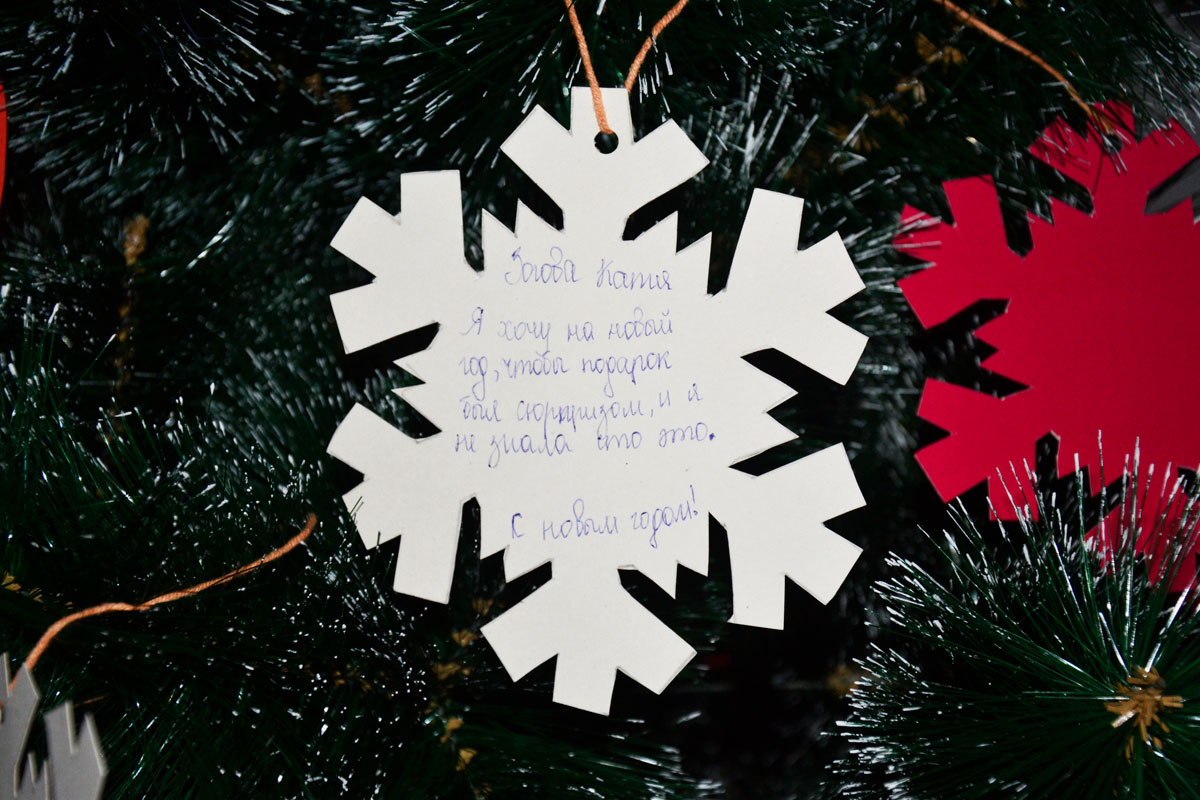 Зогова Катя
Я хочу на новый
год, чтобы подарок
был сюрпризом, и я
не знала что это.
С новым годом!